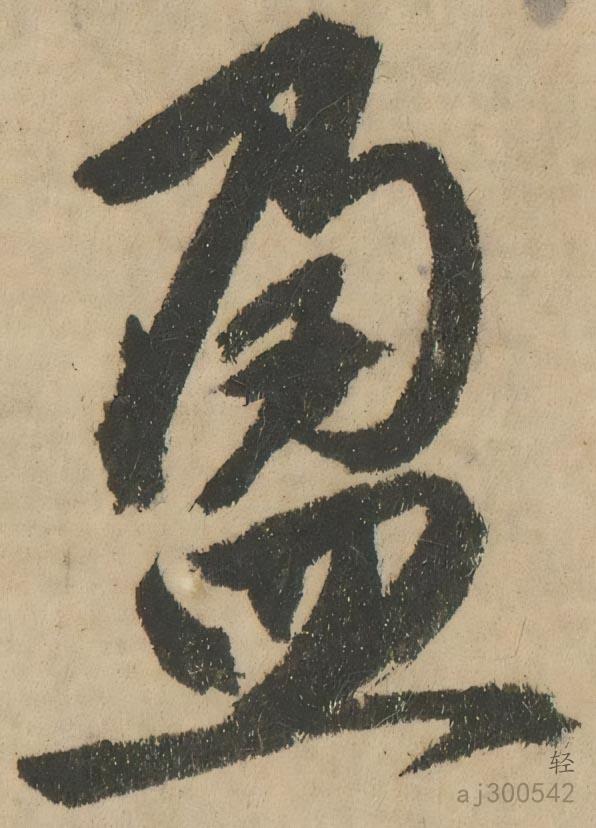 盈
轻
aj300542